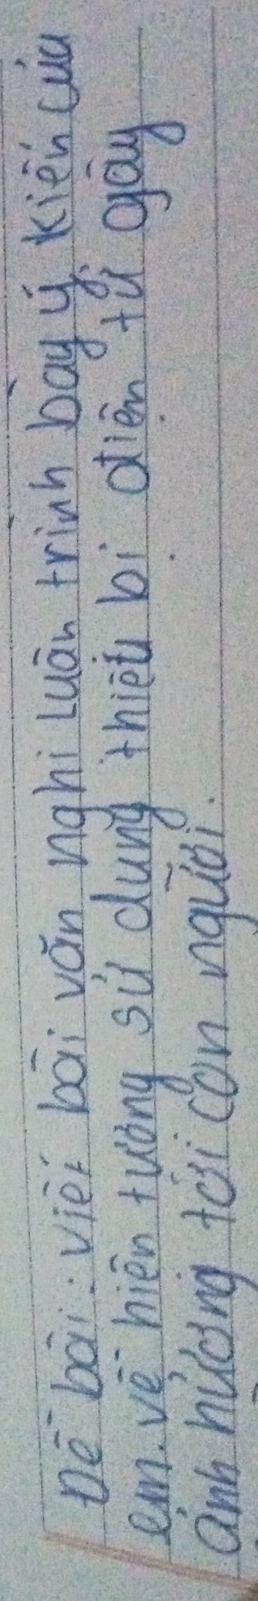 Đề bài: Viết bài văn nghị luận trình bày ý kiến của
em về hiện tượng sử dụng thiết bị điện tử gây
ảnh hưởng tới con người.